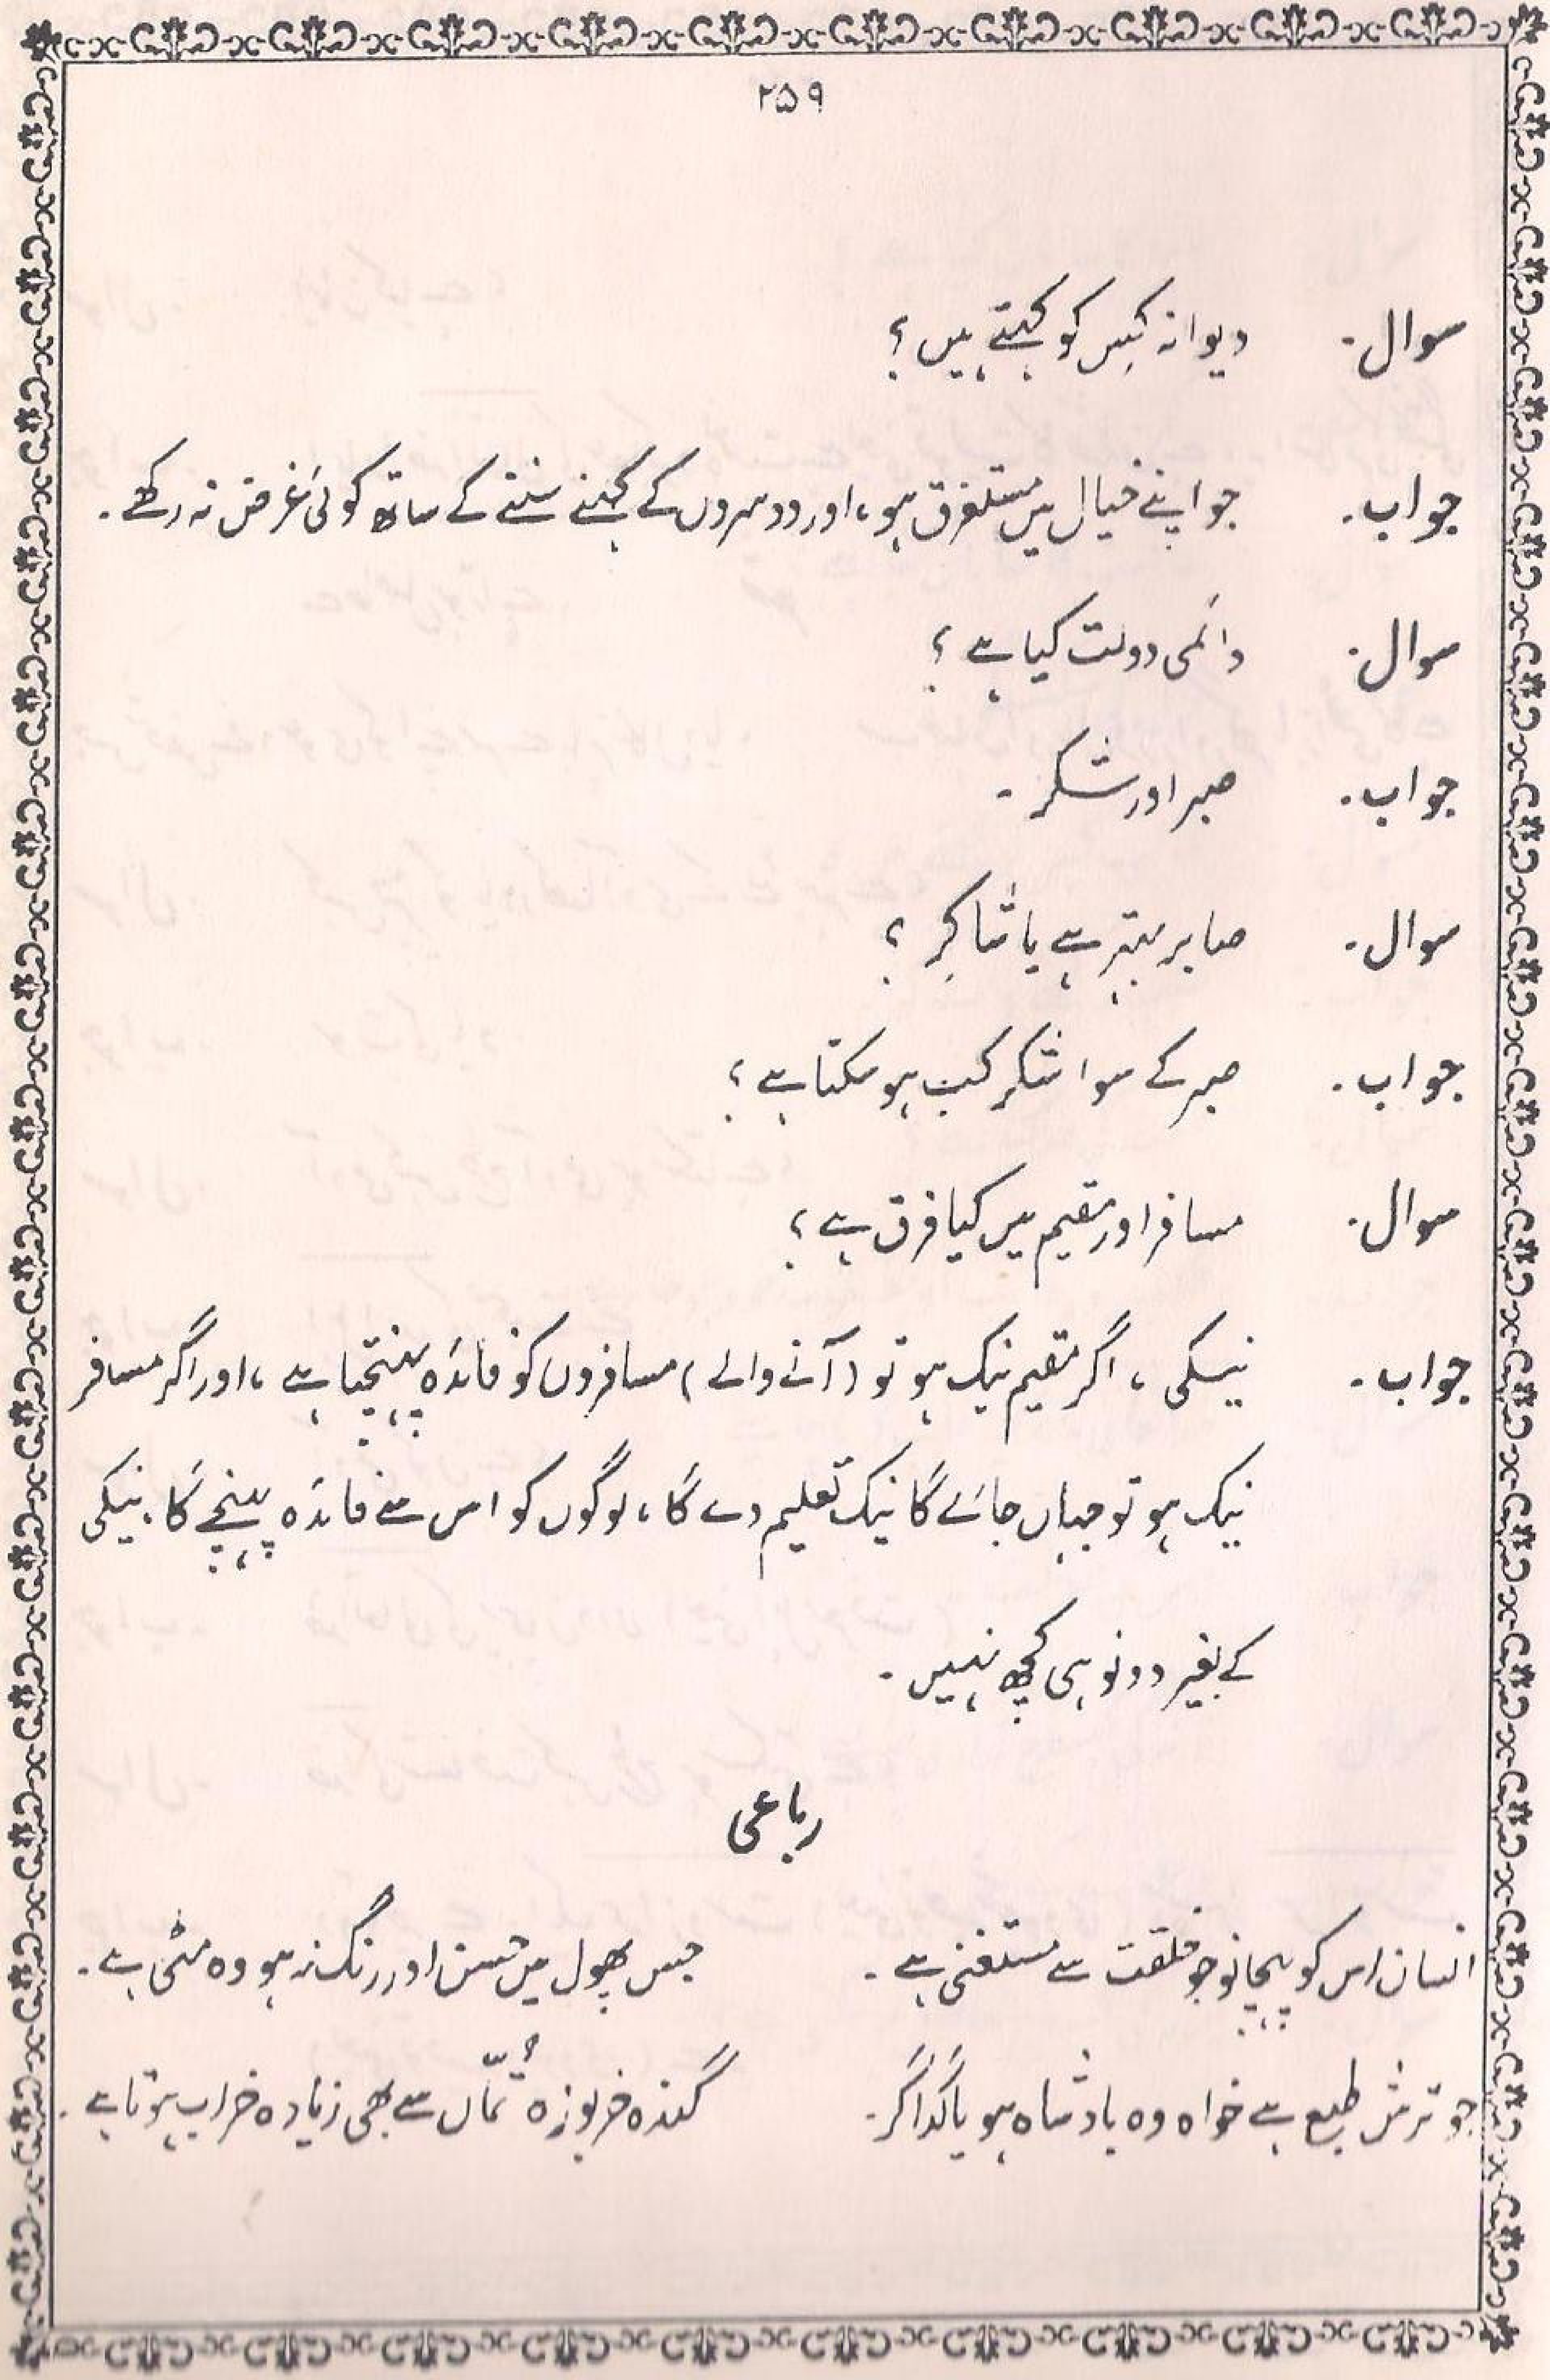 ۲۵۹
سوال۔ دیوانہ کِس کو کہتے ہیں؟
جواب۔ جو اپنے خیال میں مستغرق ہو، اور دوسروں کے کہنے سننے کے ساتھ کوئی غرض نہ رکھے۔
سوال۔ دائمی دولت کیا ہے؟
جواب۔ صبر اور شکر۔
سوال۔ صابر بہتر ہے یا شاکِر؟
جواب۔ صبر کے سوا شکر کب ہو سکتا ہے؟
سوال۔ مسافر اور مقیم میں کیا فرق ہے؟
جواب۔ نیکی، اگر مقیم نیک ہو تو (آنے والے) مسافروں کو فائدہ پہنچتا ہے، اور اگر مسافر
نیک ہو تو جہاں جائے گا نیک تعلیم دے گا، لوگوں کو اس سے فائدہ پہنچے گا۔ نیکی
کے بغیر دونو ہی کچھ نہیں۔
رباعی
انسان اس کو پہچانو جو خلقت سے مستغنی ہے۔ جس پھول میں حسن اور رنگ نہ ہو وہ مٹی ہے۔
جو ترش طبع ہے خواہ وہ بادشاہ ہو یا گداگر۔ گندہ خربوزہ تُمّاں سے بھی زیادہ خراب ہوتا ہے۔